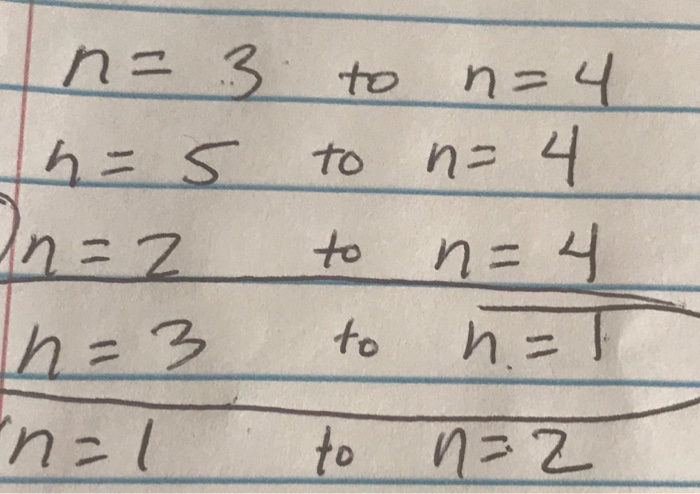 n = 3 to n = 4
n = 5 to n = 4
n = 2 to n = 4
n = 3 to n = 1
n = 1 to n = 2